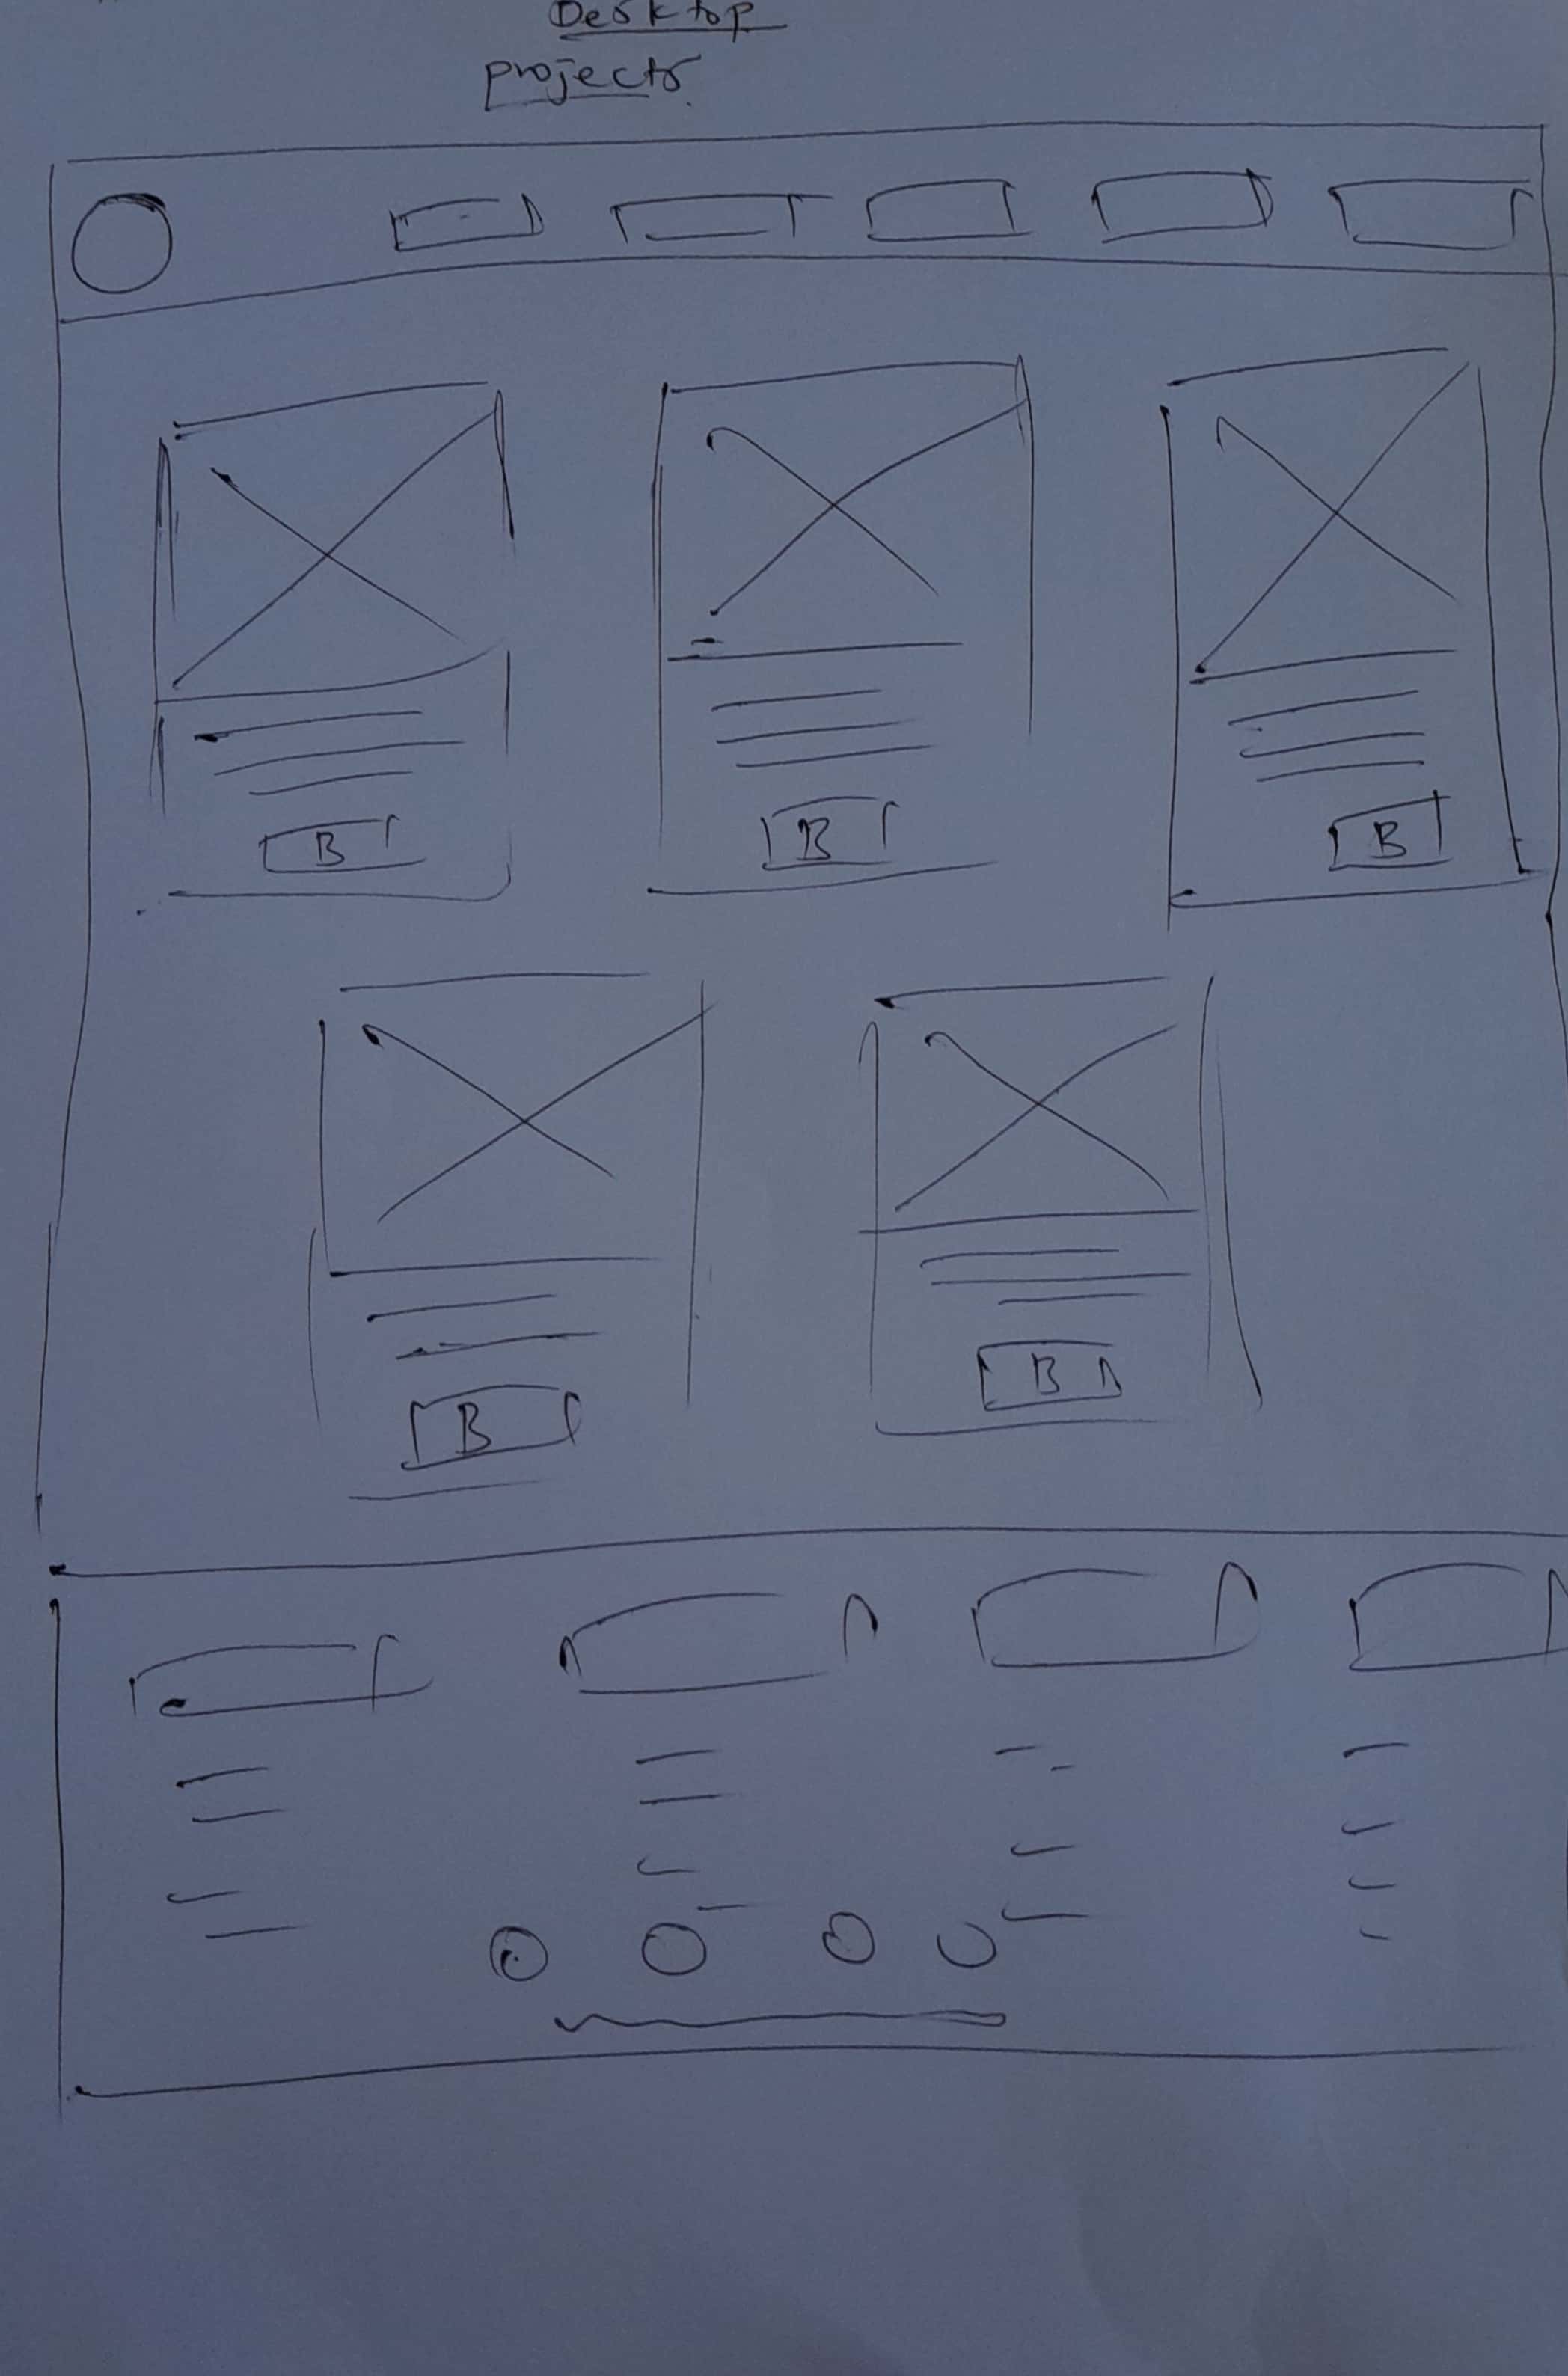 Desktop
projects.
B
B
B
B
B